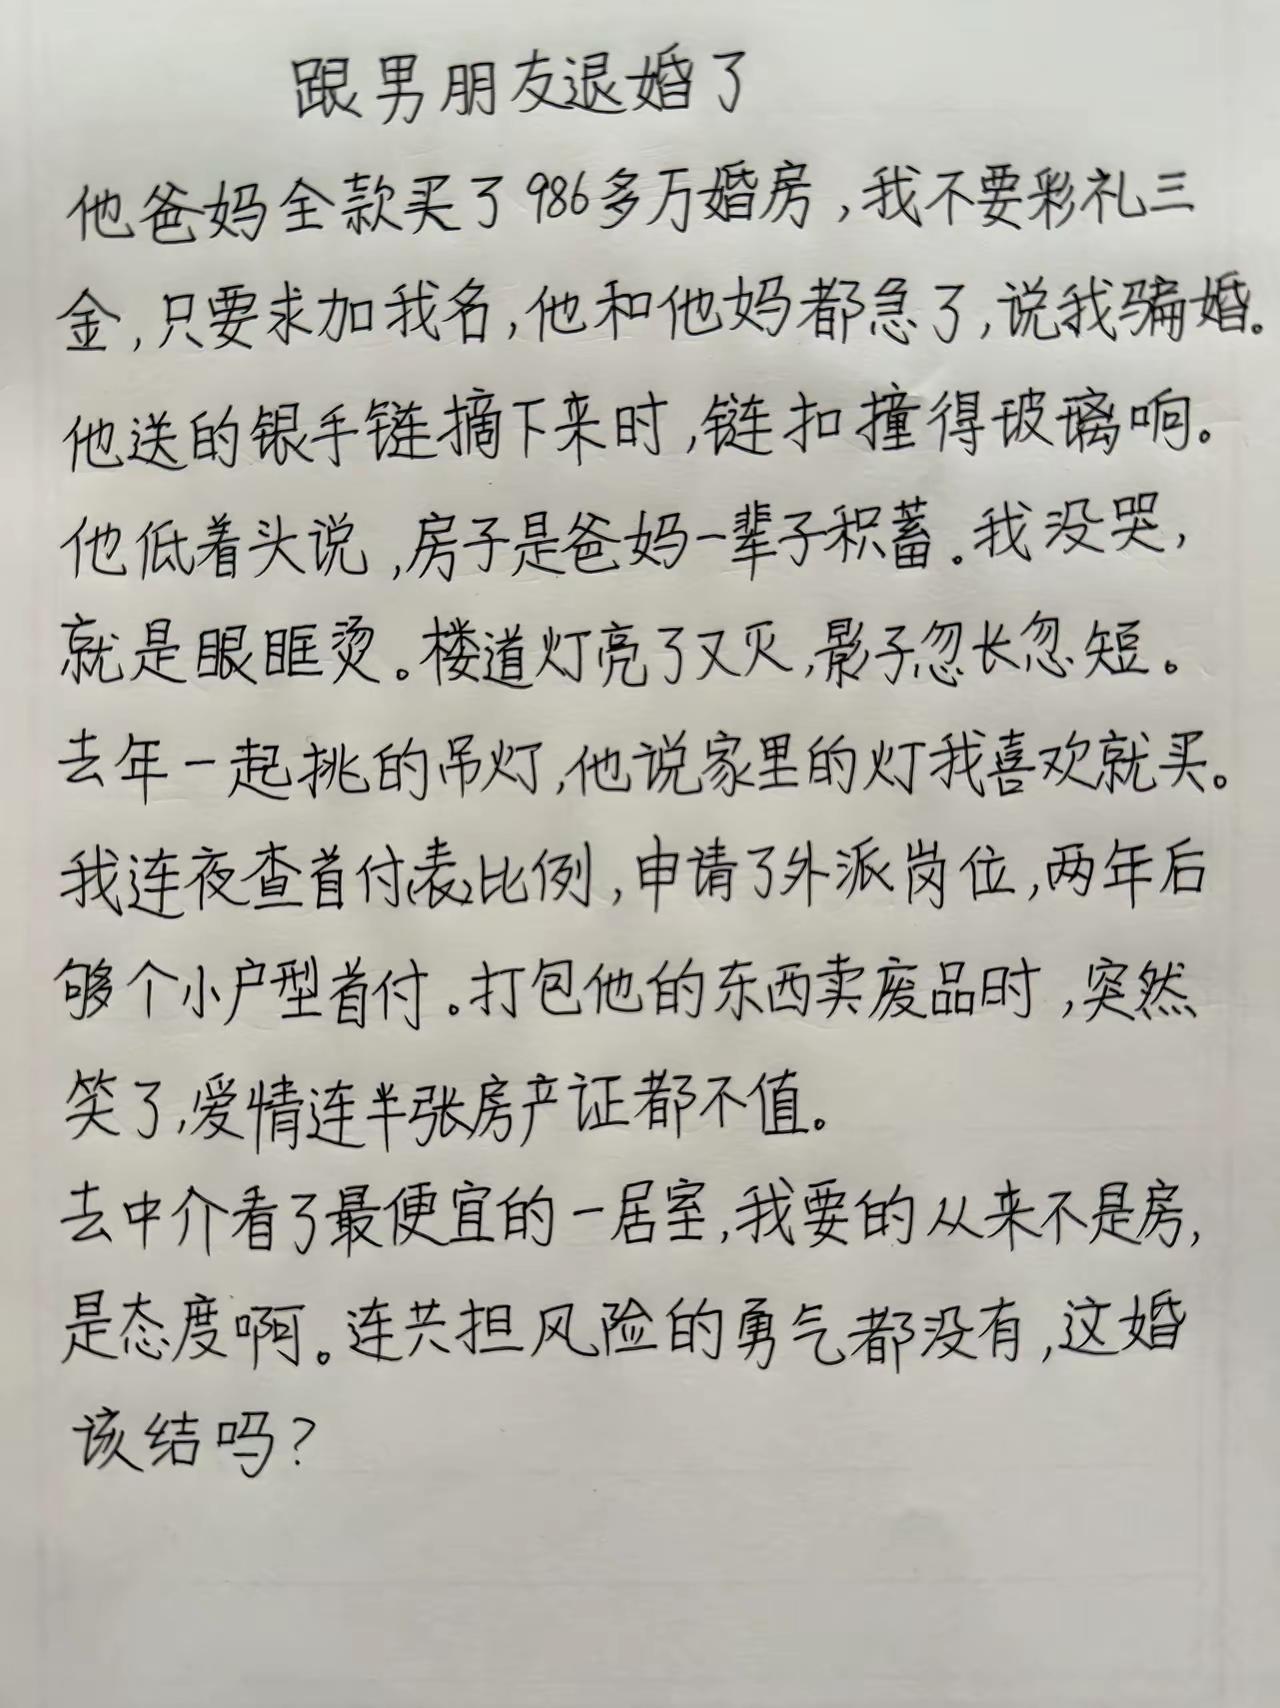 跟男朋友退婚了
他爸妈全款买了986多万婚房,我不要彩礼三
金,只要求加我名,他和他妈都急了,说我骗婚。
他送的银手链摘下来时,链扣撞得玻璃响。
他低着头说,房子是爸妈一辈子积蓄。我没哭,
就是眼眶烫。楼道灯亮了又灭,影子忽长忽短。
去年一起挑的吊灯,他说家里的灯我喜欢就买。
我连夜查首付表比例,申请了外派岗位,两年后
够个小户型首付。打包他的东西卖废品时,突然
笑了,爱情连半张房产证都不值。
去中介看了最便宜的一居室,我要的从来不是房,
是态度啊。连共担风险的勇气都没有,这婚
该结吗?